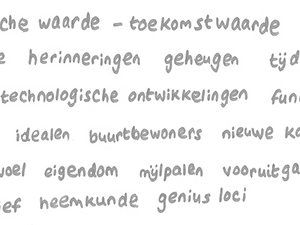 che waarde - toekomstwaarde
e herinneringen geheugen tijd
technologische ontwikkelingen fun
idealen buurtbewoners nieuwe ka
voel eigendom mijlpalen vooruitga
ief heemkunde genius loci